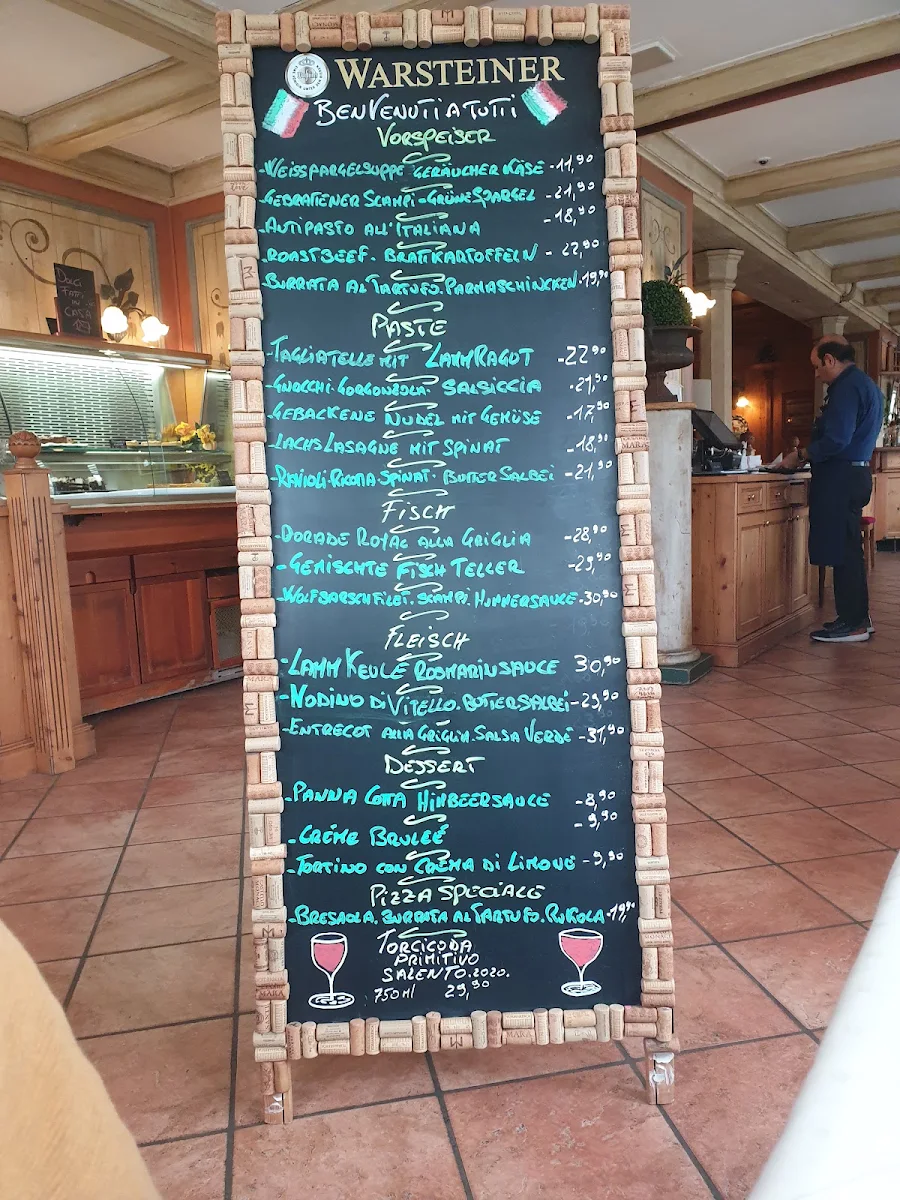 WARSTEINER
BENVENUTI A TUTTI
VORSPEISER
-WEISSPARGELSUPPE GERÄUCHER KÄSE -11,90
-GEBRATENER SCAMPI-GRÜNE SPARGEL -21,90
-ANTIPASTO ALL'ITALIANA -18,90
-ROASTBEEF. BRATKARTOFFELN -22,90
-BURRATA AL TARTUFO. PARMASCHINCKEN -19,90
PASTE
-TAGLIATELLE MIT LAMM RAGUT -22,90
-GNOCCHI-GORGONZOLA-SALSICCIA -21,90
-GEBACKENE NUDEL MIT GEMÜSE -17,90
-LACHS LASAGNE MIT SPINAT -18,90
-RAVIOLI-RICOTTA-SPINAT-BUTTER SALBEI -21,90
FISCH
-DORADE ROYAL ALLA GRIGLIA -28,90
-GEMISCHTE FISCH TELLER -29,90
-WOLFSARSCHFILET. SCAMPI. HUMMERSAUCE -30,90
FLEISCH
-LAMM KEULE ROSMARINSAUCE 30,90
-NODINO DI VITELLO. BUTTERSALBEI -29,90
-ENTRECOT ALLA GRIGLIA. SALSA VERDE -31,90
DESSERT
-PANNA COTTA HINBEERSAUCE -8,90
-CRÉME BRULEÉ -9,90
-TORTINO CON CREMA DI LIMONE -9,90
PIZZA SPECIALE
-BRESAOLA. BURRATA AL TARTUFO. RUKOLA -19,90
TORCICODA
PRIMITIVO
SALENTO.2020.
750ml 29,90
DOLCI
FATTI
IN
CASA